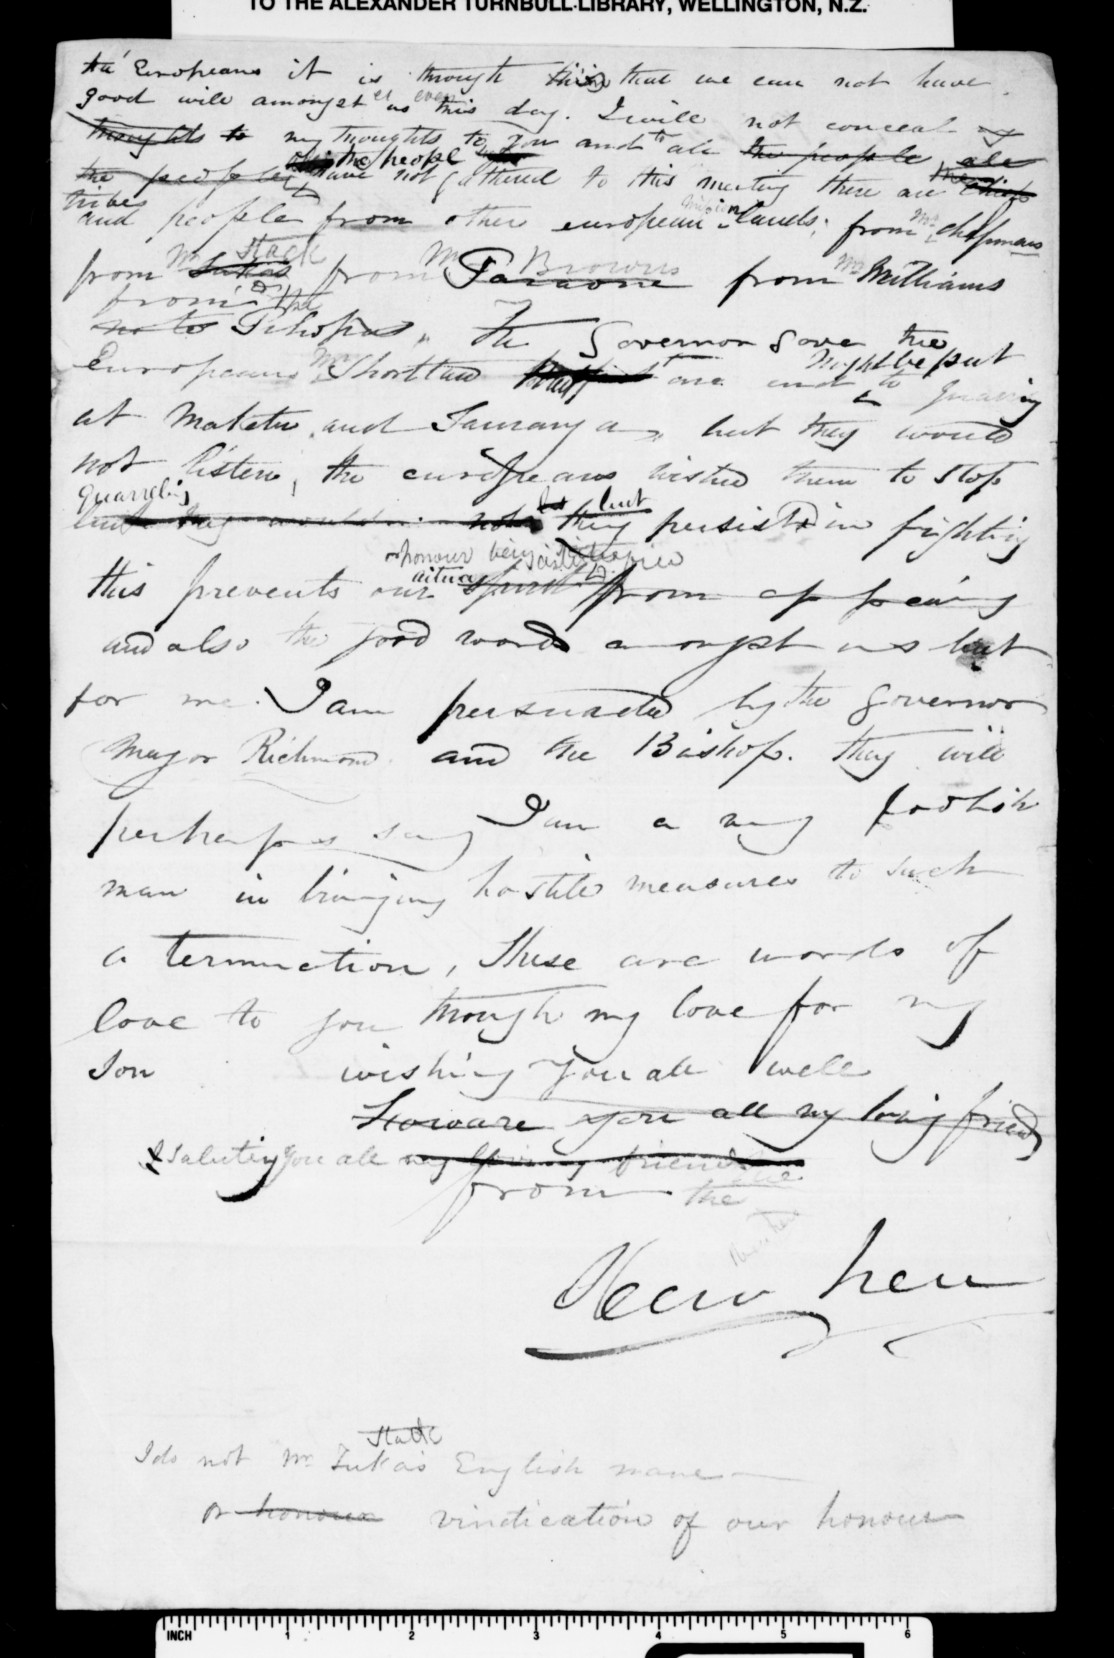 TO THE ALEXANDER TURNBULL LIBRARY, WELLINGTON, N.Z.
Europeans it is through this that we can not have
good will amongst us even this day. I will not conceal my
thoughts to my thoughts to you and to all the people all
the people the people have not gathered to this meeting there are the chiefs
tribes
and people from other european mission lands; from Mr Chapmans
from Mr Stack from Mr Browns from Mr Williams
from the
no to Pihopas, The Governor gave the
Europeans Mr Shortland that one and might be put to quarrelling
at Maketu and Tauranga, but they would
not listen, the europeans wished them to stop
quarreling
but they would not but they persisted in fighting
or honour being
this prevents our spirit from appearing
and also the good words amongst us but
for me. I am persuaded by the Governor
Major Richmond and the Bishop. they will
perhaps say I am a very foolish
man in bringing hostile measures to such
a termination, these are words of
love to you through my love for my
son wishing you all well
How are you all my loving friends
I saluting you all my loving friends
from the
heu heu
Stack
I do not Mr Tuka's English name
or honour vindication of our honour
INCH 1 2 3 4 5 6